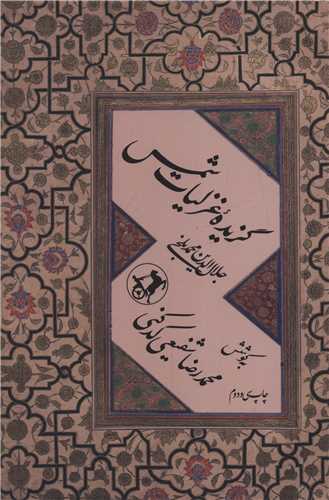 گزیدهٔ غزلیات شمس
جلال‌الدین محمد بلخی
بکوشش
محمدرضا شفیعی کدکنی
چاپ سی و دوم